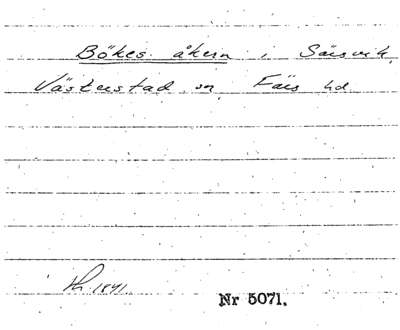 Bökes åkern i Särsvik,
Västerstad sn, Färs hd
1841.
Nr 5071.